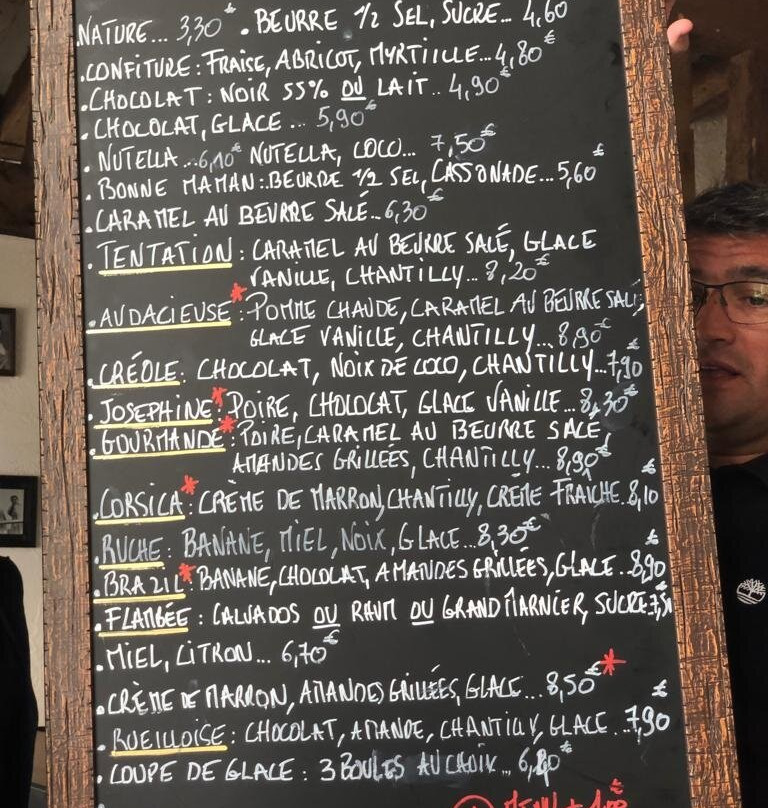 NATURE... 3,30€ . BEURRE 1/2 SEL, SUCRE... 4,60
.CONFITURE : FRAISE, ABRICOT, MYRTIILLE...4,80€
.CHOCOLAT : NOIR 55% OU LAIT.. 4,90€
.CHOCOLAT, GLACE ... 5,90€
.NUTELLA...6,10€ NUTELLA, COCO... 7,50€
.BONNE MAMAN : BEURRE 1/2 SEL, CASSONADE...5,60€
.CARAMEL AU BEURRE SALÉ...6,30€
.TENTATION : CARAMEL AU BEURRE SALÉ, GLACE
VANILLE, CHANTILLY... 8,20€
.AUDACIEUSE* : POMME CHAUDE, CARAMEL AU BEURRE SALÉ,
GLACE VANILLE, CHANTILLY... 8,90€
.CRÉOLE : CHOCOLAT, NOIX DE COCO, CHANTILLY...7,90€
.JOSEPHINE* : POIRE, CHOCOLAT, GLACE VANILLE... 8,30€
.GOURMANDE* : POIRE, CARAMEL AU BEURRE SALÉ,
AMANDES GRILLÉES, CHANTILLY... 8,90€
.CORSICA* : CRÈME DE MARRON, CHANTILLY, CRÈME FRAÎCHE. 8,10€
.RUCHE : BANANE, MIEL, NOIX, GLACE... 8,30€
.BRAZIL* : BANANE, CHOCOLAT, AMANDES GRILLÉES, GLACE.. 8,90€
.FLAMBÉE : CALVADOS OU RHUM OU GRAND MARNIER, SUCRE
.MIEL, CITRON... 6,70€
.CRÈME DE MARRON, AMANDES GRILLÉES, GLACE... 8,50€*
.RUEILLOISE : CHOCOLAT, AMANDE, CHANTILLY, GLACE...7,90€
.COUPE DE GLACE : 3 BOULES AU CHOIX... 6,80€